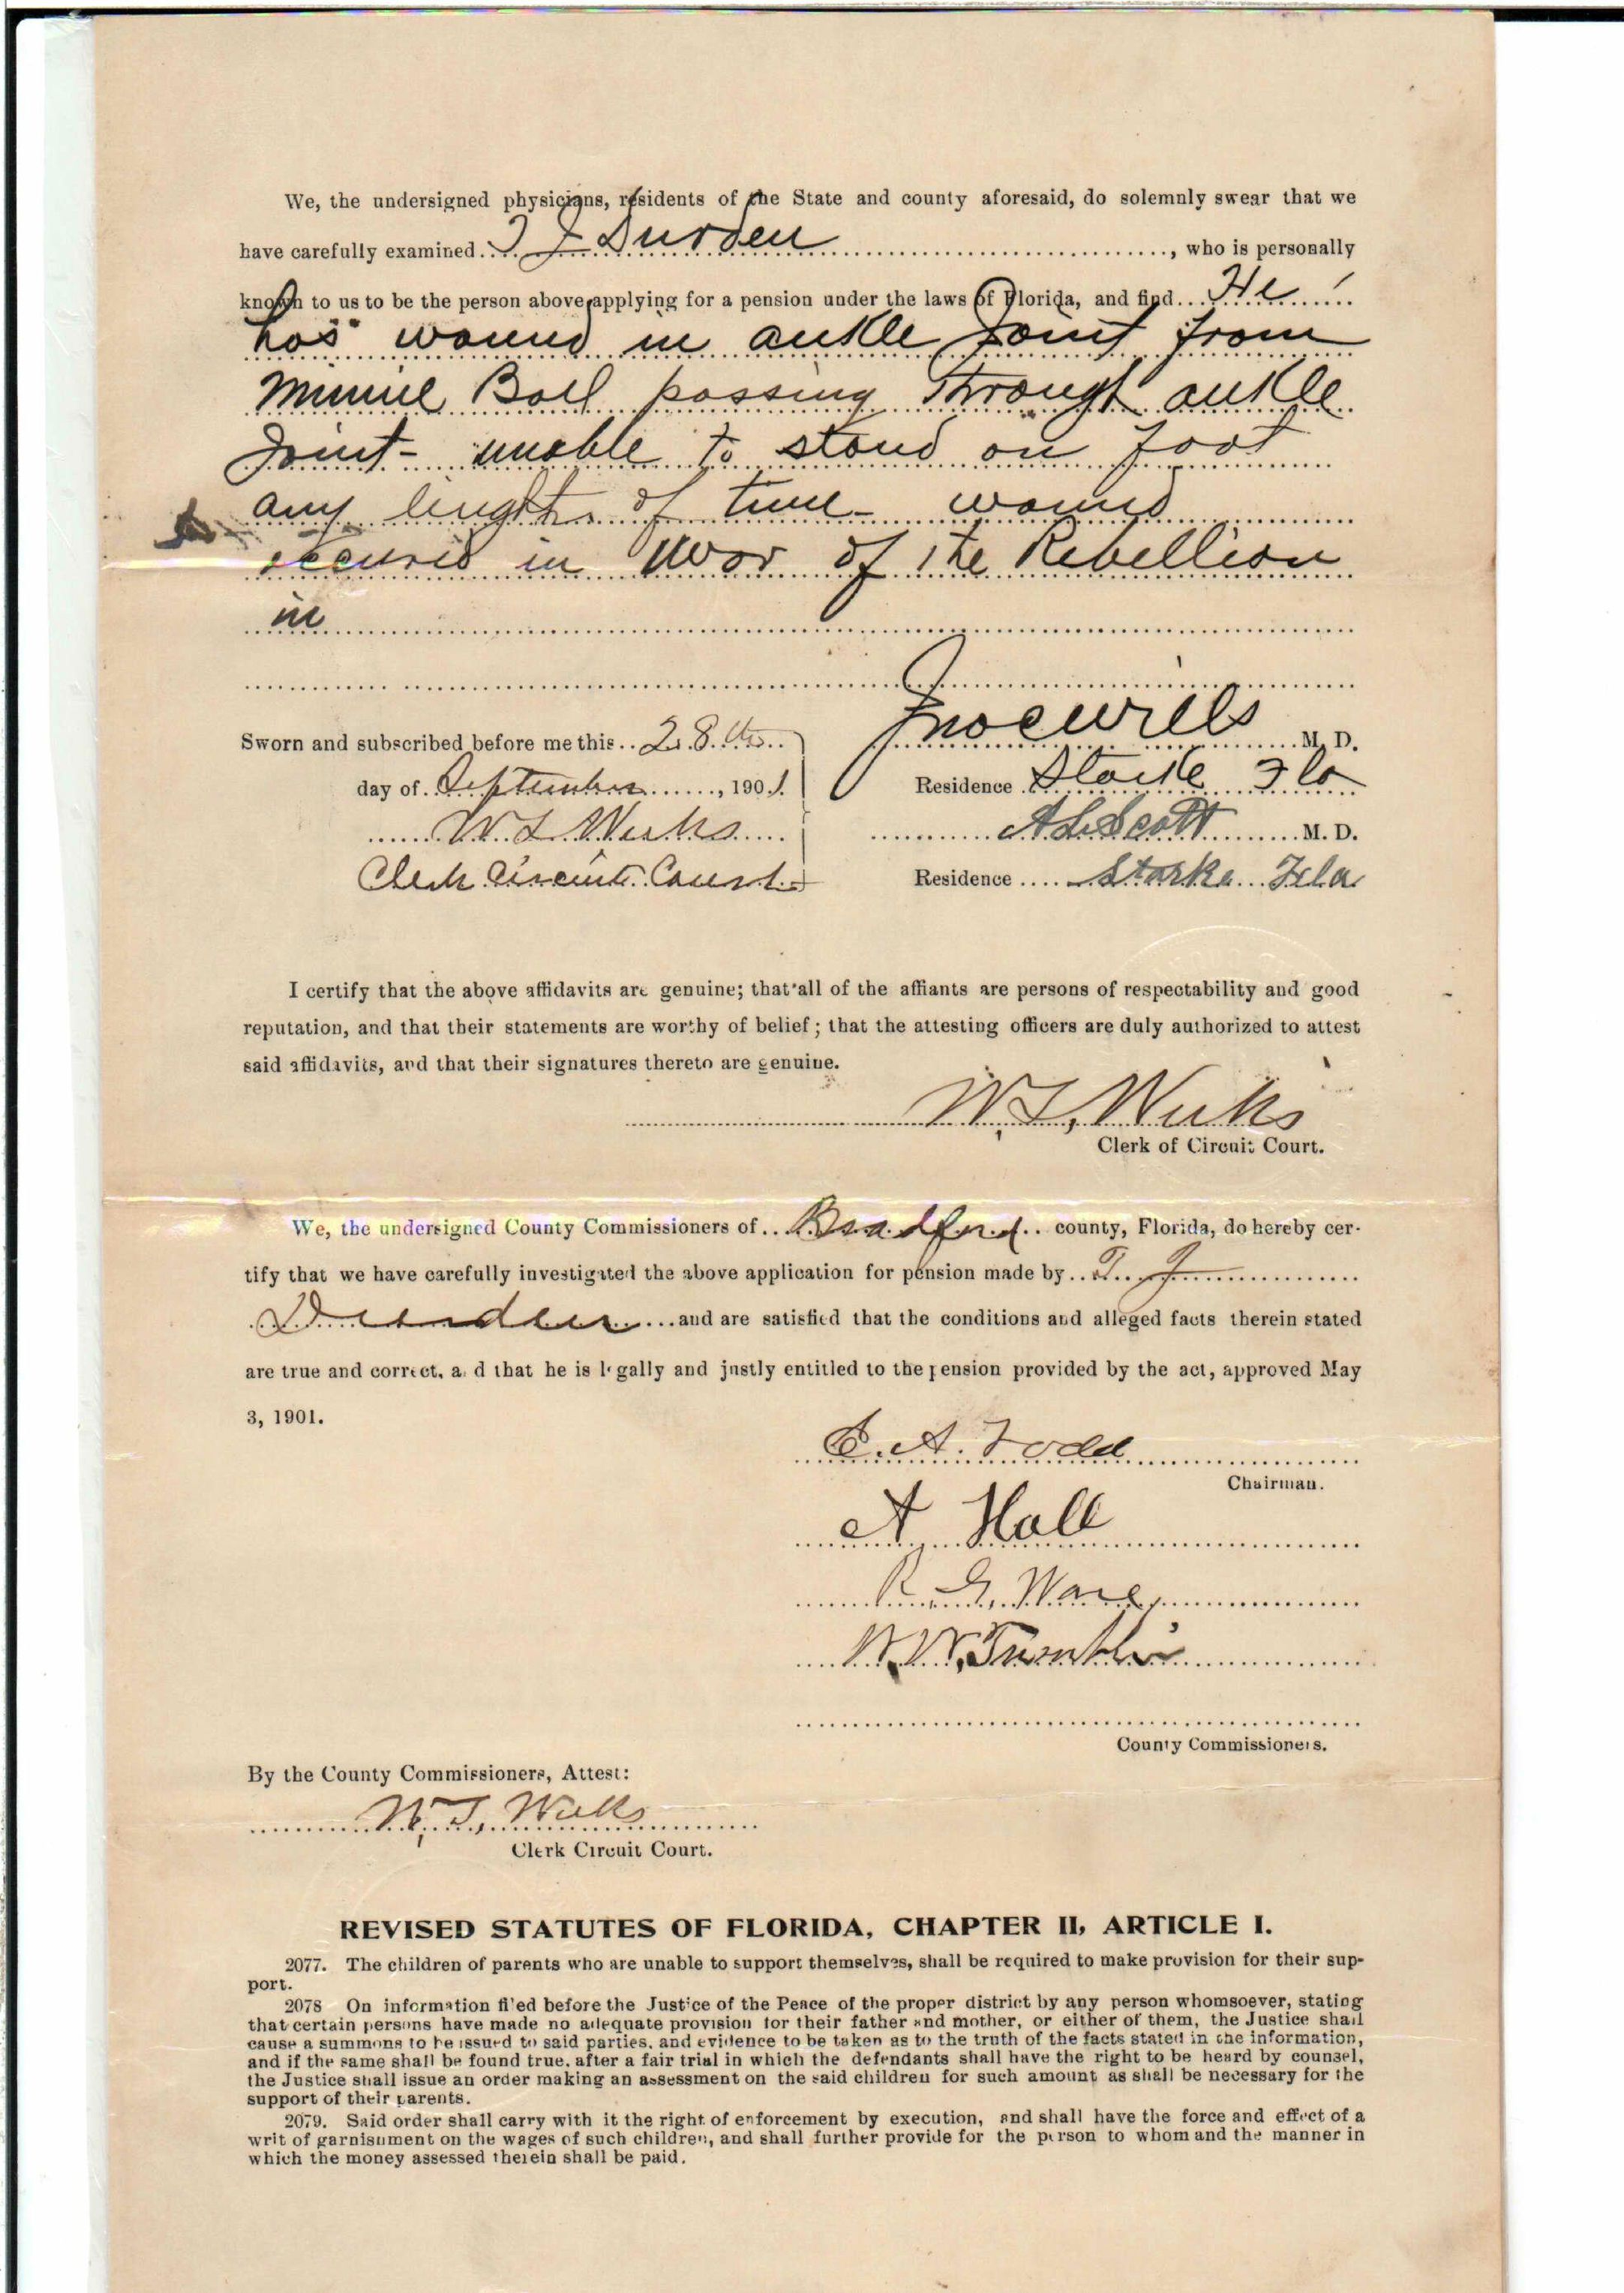 We, the undersigned physicians, residents of the State and county aforesaid, do solemnly swear that we
have carefully examined T J Durden, who is personally
known to us to be the person above applying for a pension under the laws of Florida, and find He
has wound in ankle Joint from
Minnie Ball passing through ankle
Joint - unable to stand on foot
any length of time - wound
occured in War of the Rebellion
in
Sworn and subscribed before me this 28th
day of September, 1901
W L Weeks
Clerk Circuit Court
M. D.
Residence Starke Fla
A L Scott M. D.
Residence Starke Fla
I certify that the above affidavits are genuine; that all of the affiants are persons of respectability and good
reputation, and that their statements are worthy of belief; that the attesting officers are duly authorized to attest
said affidavits, and that their signatures thereto are genuine.
Weeks
Clerk of Circuit Court.
We, the undersigned County Commissioners of Bradford county, Florida, do hereby cer-
tify that we have carefully investigated the above application for pension made by T. J
Durden and are satisfied that the conditions and alleged facts therein stated
are true and correct, and that he is legally and justly entitled to the pension provided by the act, approved May
3, 1901.
E. A. Todd
Chairman.
A Hall
R. G. Ware
W. W. Tumblin
County Commissioners.
By the County Commissioners, Attest:
Weeks
Clerk Circuit Court.
REVISED STATUTES OF FLORIDA, CHAPTER II, ARTICLE I.
2077. The children of parents who are unable to support themselves, shall be required to make provision for their sup-
port.
2078 On information filed before the Justice of the Peace of the proper district by any person whomsoever, stating
that certain persons have made no adequate provision for their father and mother, or either of them, the Justice shall
cause a summons to be issued to said parties, and evidence to be taken as to the truth of the facts stated in the information,
and if the same shall be found true, after a fair trial in which the defendants shall have the right to be heard by counsel,
the Justice shall issue an order making an assessment on the said children for such amount as shall be necessary for the
support of their parents.
2079. Said order shall carry with it the right of enforcement by execution, and shall have the force and effect of a
writ of garnishment on the wages of such children, and shall further provide for the person to whom and the manner in
which the money assessed therein shall be paid.